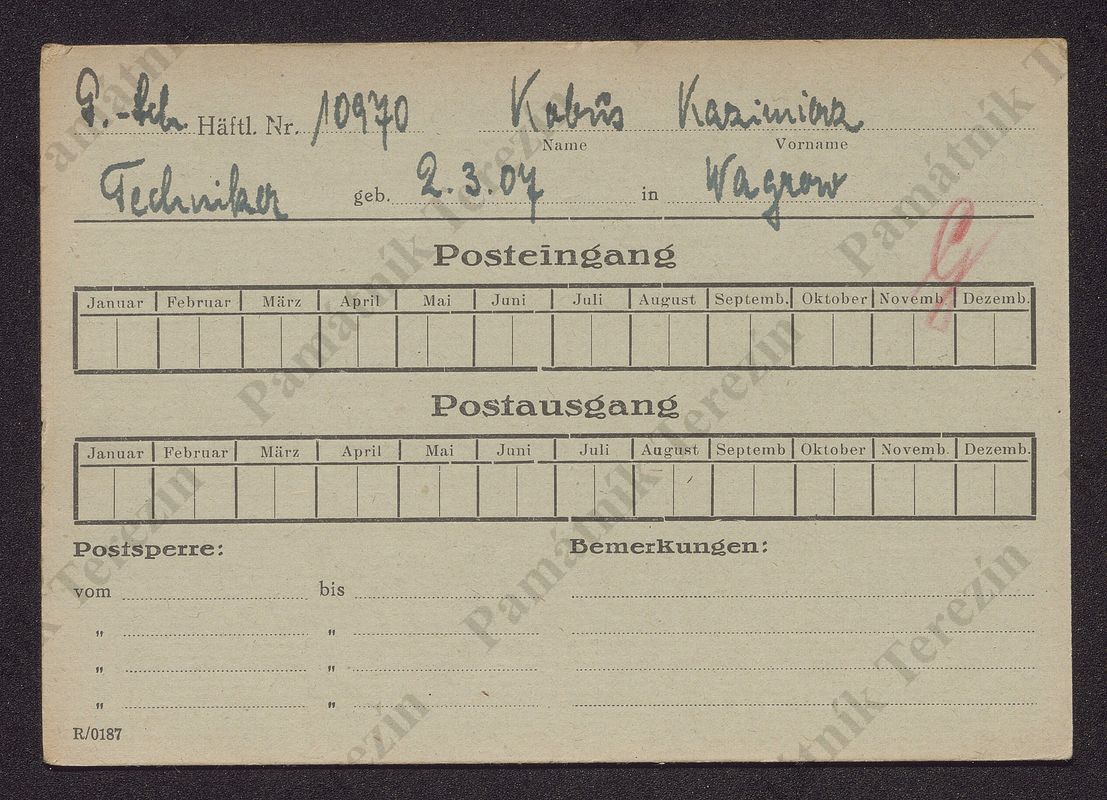 P.-Sch. Häftl. Nr. 10970 Kabus Kazimierz
Name Vorname
Techniker geb. 2.3.07 in Wagrow
Posteingang
Januar Februar März April Mai Juni Juli August Septemb. Oktober Novemb. Dezemb.
Postausgang
Januar Februar März April Mai Juni Juli August Septemb Oktober Novemb. Dezemb.
Postsperre: Bemerkungen:
vom bis
" "
" "
" "
R/0187
Památník Terezín